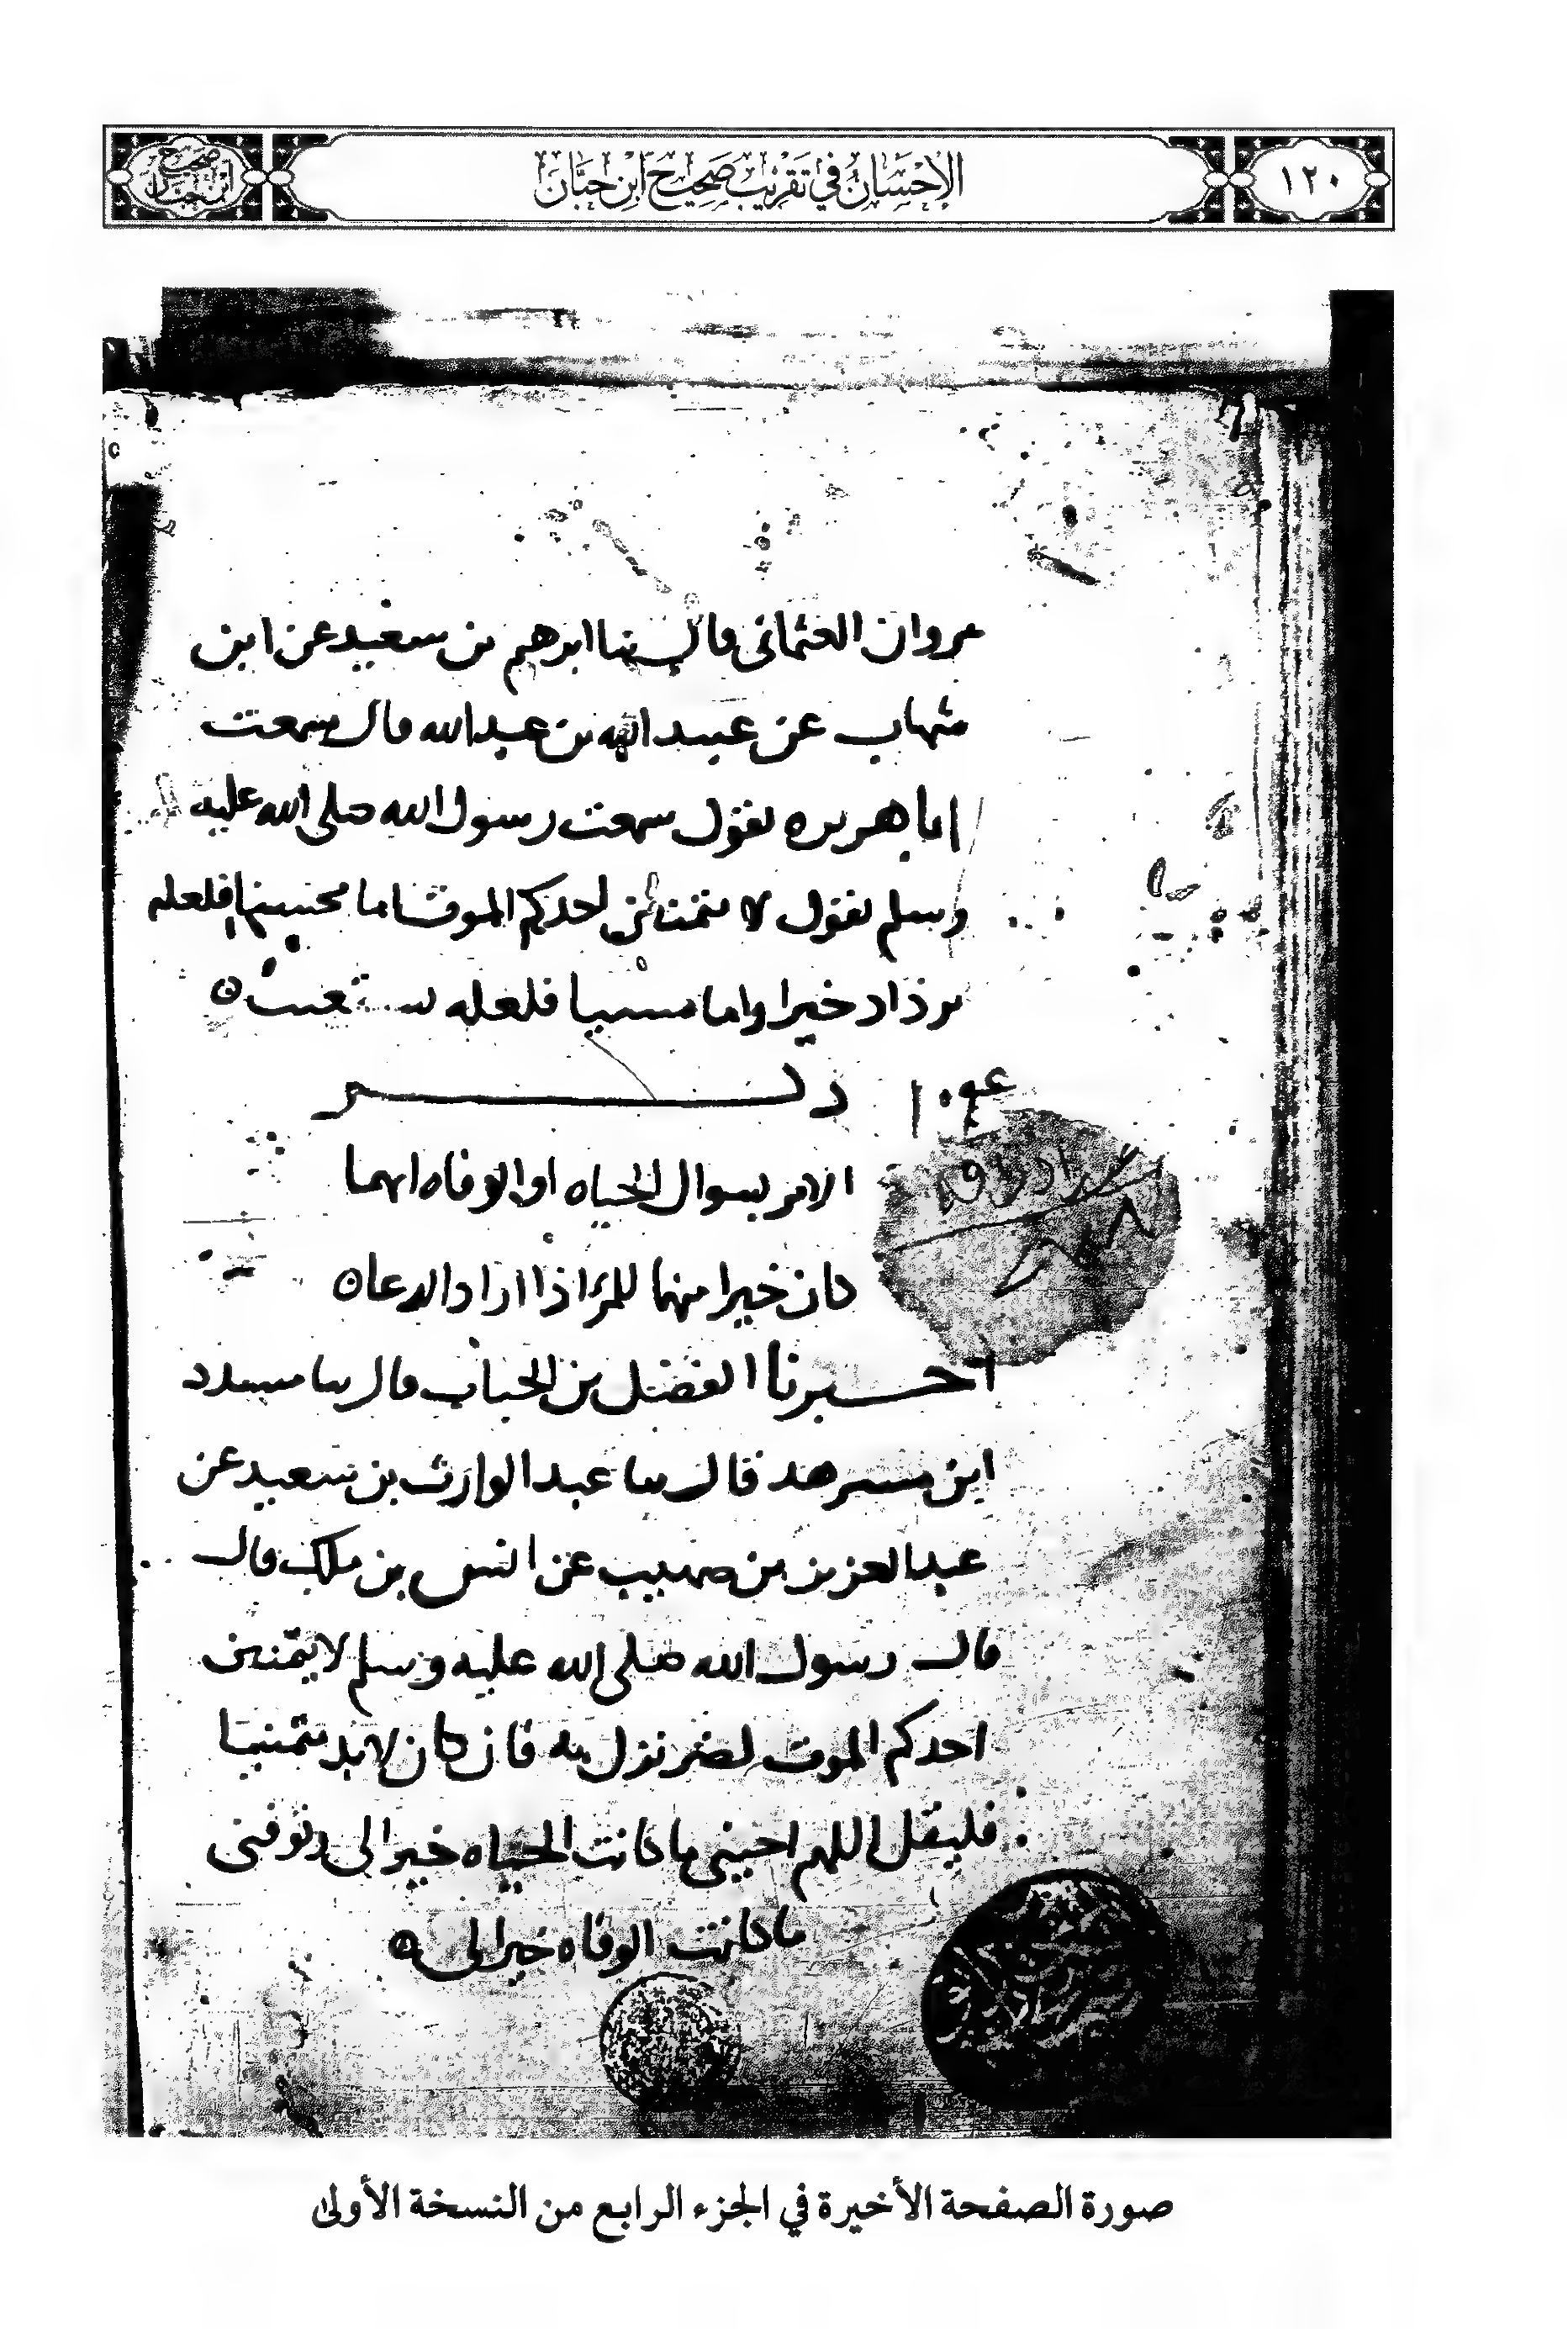 ١٢٠
الإحسان في تقريب صحيح ابن حبان
صحيح ابن حبان
مروان العثمانى قال ثنا ابرهيم بن سعيد عن ابن
شهاب عن عبيد الله بن عبد الله قال سمعت
ابا هريره يقول سمعت رسول الله صلى الله عليه
وسلم يقول لا يتمنين احدكم الموت اما محسنا فلعله
يزداد خيرا واما مسيا فلعله يستعتب
ذكر
الامر بسوال الحياه او الوفاه ايهما
كان خيرا منهما للمرء اذا اراد الدعا
اخبرنا الفضل بن الحباب قال ثنا مسدد
ابن مسرهد قال ثنا عبد الوارث بن سعيد عن
عبد العزيز بن صهيب عن انس بن ملك قال
قال رسول الله صلى الله عليه وسلم لا يتمنين
احدكم الموت لضر نزل به فان كان لابد متمنيا
فليقل اللهم احينى ما كانت الحياه خيرا لى وتوفنى
ما كانت الوفاه خيرا لى
صورة الصفحة الأخيرة في الجزء الرابع من النسخة الأولى